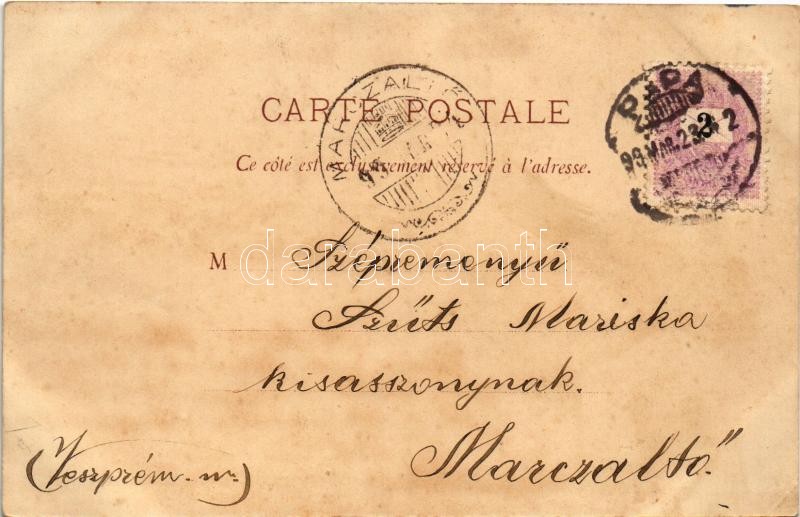 CARTE POSTALE
Ce côté est exclusivement réservé à l'adresse.
MARCZALTŐ
PÁPA
99 MAR. 23
3
M Szépreményű
Szűts Mariska
kisasszonynak.
Marczaltő.
(Veszprém. m.)
darabanth